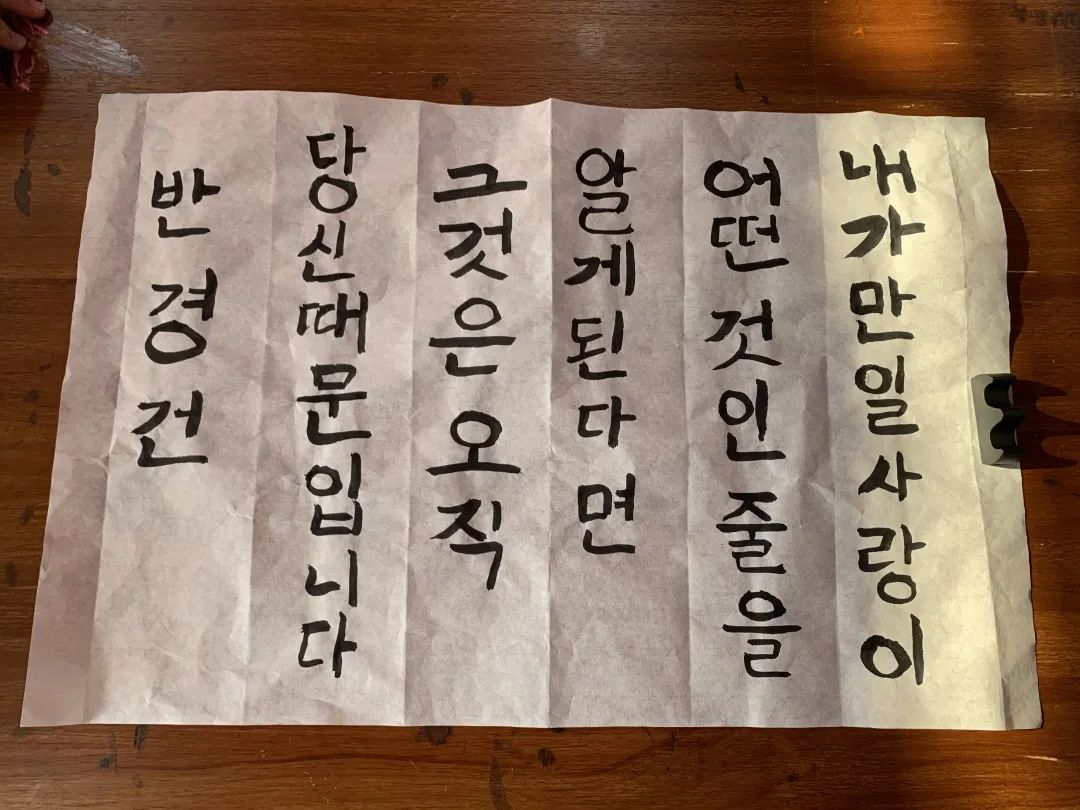 내가 만일 사랑이
어떤 것인 줄을
알게 된다면
그것은 오직
당신 때문입니다
반경건